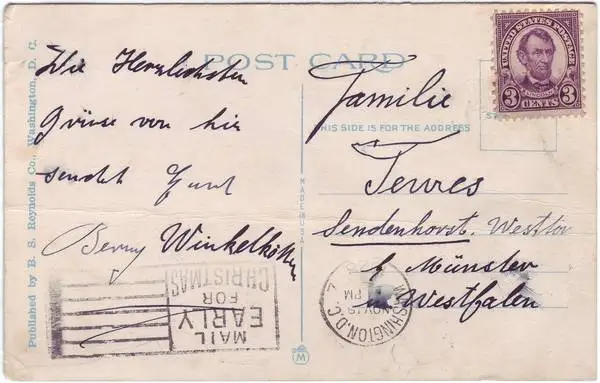 POST CARD
Die Herzlichsten
Grüsse von hir
sendet Eund
Benny Winkelkötter
Familie
THIS SIDE IS FOR THE ADDRESS
Tewes
Sendenhorst. Westfor
b Münster
in Westfalen
UNITED STATES POSTAGE
LINCOLN
3 CENTS 3
Published by B. S. Reynolds Co., Washington, D. C.
MADE IN U.S.A.
MAIL
EARLY
FOR
CHRISTMAS
WASHINGTON D.C.
NOV 19
PM
M